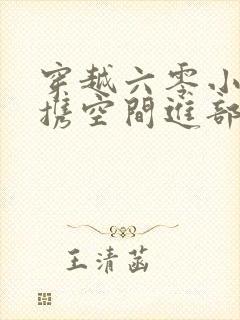 穿越六零小
携空間進部
王清菡